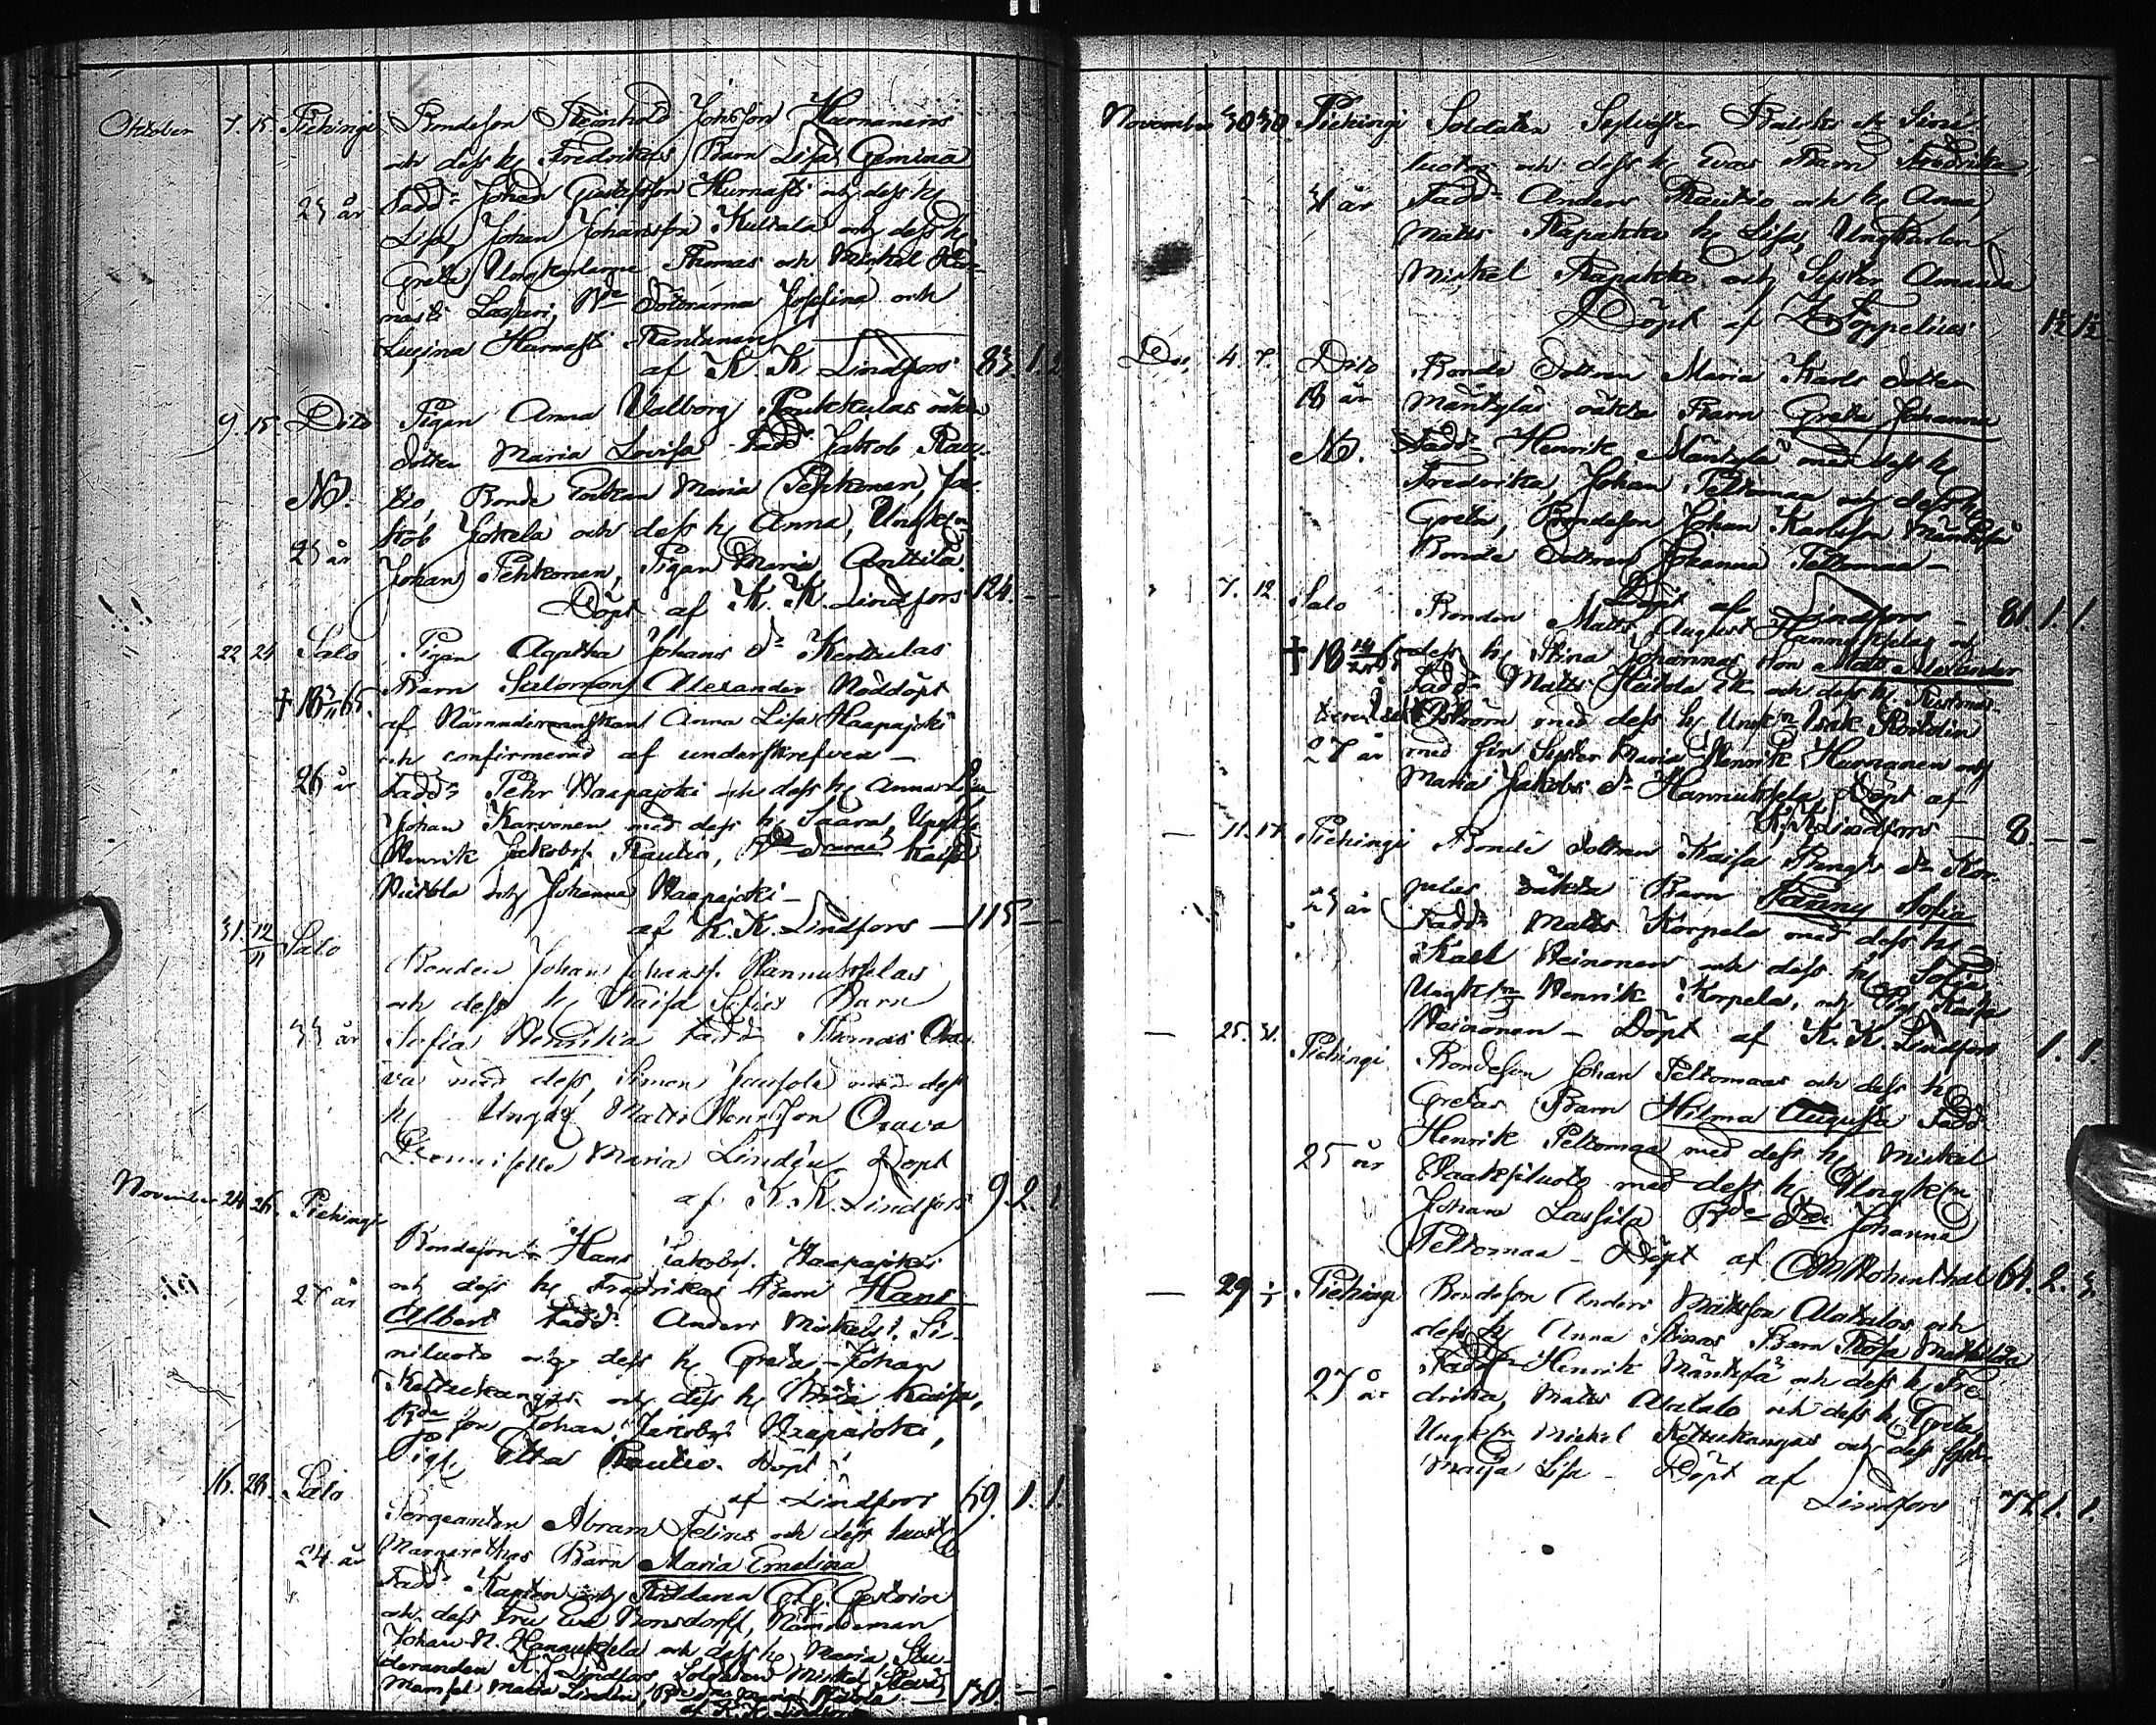 Oktober 7. 15 Piehingi Bondeson Johansson Hurnanens
och dess h. Fredrikas Barn Lisa Gemina
Fadd. Johan Gustafsson Hurnasti och dess h.
23 år
Lisa, Johan Johansson Kultala och dess h.
Greta Ungkarlarne Thomas och Mickel Hur-
nasti Bde Döttrarna Josefina och
Lusina Hurnasti Rantanen
af K. K. Lindfors 83. 1. 2
9. 15. Dito Pigan Anna Valborg Poukkulas oäkta
dotter Maria Lovisa Fadd. Jakob Rau-
NB. tio, Bonde Enkan Maria Pehkonen, Ja-
kob Jokela och dess h. Anna, Ungk.
25 år Johan Pehkonen, Pigan Maria Anttila.
Döpt af K. K. Lindfors 124. — —
22 24 Salo Pigan Agatha Johans d. Kerttulas
Barn Salomon Alexander Nöddöpt
† 18 65.
af Nämndemanskan Anna Lisa Haapajoki
och confirmerad af underskrefven —
26 år Fadd. Pehr Haapajoki och dess h. Anna Lisa
Johan Karvonen med dess h. Saara, Ungk.
Henrik Jakobss. Rautio, Bde Kaisa
Hietala och Johanna Haapajoki —
af K. K. Lindfors — 115 —
31. 12/11 Salo Bonden Johan Johanss. Hannukselas
och dess h. Kaisa Sofias Barn
33 år Sofia Henrika Fadd. Thomas Ora-
va med dess, Simon Jaakola med dess
h. Ungk. Matts Henriksson Orava
Maria Lindén Döpt
af K. K. Lindfors 9. 2. 1.
November 24. 26. Piehingi
Bondeson Hans Jakobss. Haapajokis
och dess h. Fredrikas Barn Hans
27 år
Albert Fadd. Anders Mickelss. Si-
niluoto och dess h. Greta — Johan
Kettukangas och dess h. Maria Kaisa,
Bde son Johan Jakobss. Haapajoki,
Pig. Rautio. Döpt
af Lindfors 69. 1. 1.
16. 28. Salo Sergeanten Abram Felins och dess hustr.
24 år Margarethas Barn Maria Emelina
Fadd. Kapten och Riddaren
och dess Fru Eva Bonsdorff, Nämndeman
Johan N. Hannuksela och dess h. Maria, Stu-
deranden K. J. Lindfors Soldaten Mickel
Mamsel Maria Lindén, — 130. —
af K. K. Lindfors
November 30 30. Piehingi Soldaten Sylvester och Sini-
luoto och dess h. Evas Barn Fredrika
31 år Fadd. Anders Rautio och h. Anna,
Matts Rapakko h. Lisa, Ungkarlen
Mickel Rapakko och Syster Amanda
Döpt af Toppelius 1½. 1½.
Dec. 4. 7. Dito Bonde Dottren Maria Karls dotter
18 år Mäntyläs oäkta Barn Greta Johanna
NB. Fadd. Henrik Mäntylä med dess h.
Fredrika, Johan Peltomaa och dess h.
Greta, Bondeson Johan Karlsson Mäntylä
Bonde Dottren Johanna Peltomaa —
Döpt af Lindfors — 81. 1. 1.
" 7. 12. Salo Bonden Matts August Hannukselas och
† 18 14/2 65 dess h. Stina Johannas Son Matts Alexander
Fadd. Matts Hietala och dess h.
Åström med dess h. Ungk. Isak
27 år med sin Syster Maria Henrik Hurnanen och
Maria Jakobs d. Hannuksela. Döpt af
K. K. Lindfors — 8. — —
— 11. 17. Piehingi Bonde dottren Kaisa Bengts d. Kor-
pelas oäkta Barn Fanny Sofia
23 år Fadd. Matts Korpela med dess h. —
Karl Heinonen och dess h. Sofia,
Ungk. Henrik Korpela, och Pig. Kaisa
Heinonen — Döpt af K. K. Lindfors 1. 1.
— 25. 31. Piehingi Bondeson Johan Peltomaas och dess h.
Gretas Barn Hilma Augusta Fadd.
Henrik Peltomaa med dess h. Mickel
25 år Haaksiluoto med dess h. Ungk.
Johan Lassila Bde Johanna
Peltomaa — Döpt af Rosenthal 64. 2. 3
— 29 1/1 Piehingi Bondeson Anders Mattsson Alatalos och
dess h. Anna Stinas Barn Rosa Mathilda
Fadd. Henrik Mäntylä och dess h. Fre-
27 år drika, Matts Alatalo och dess h. Greta,
Ungk. Mickel Kettukangas och dess
Maija Lisa — Döpt af
Lindfors 77. 1. 1.